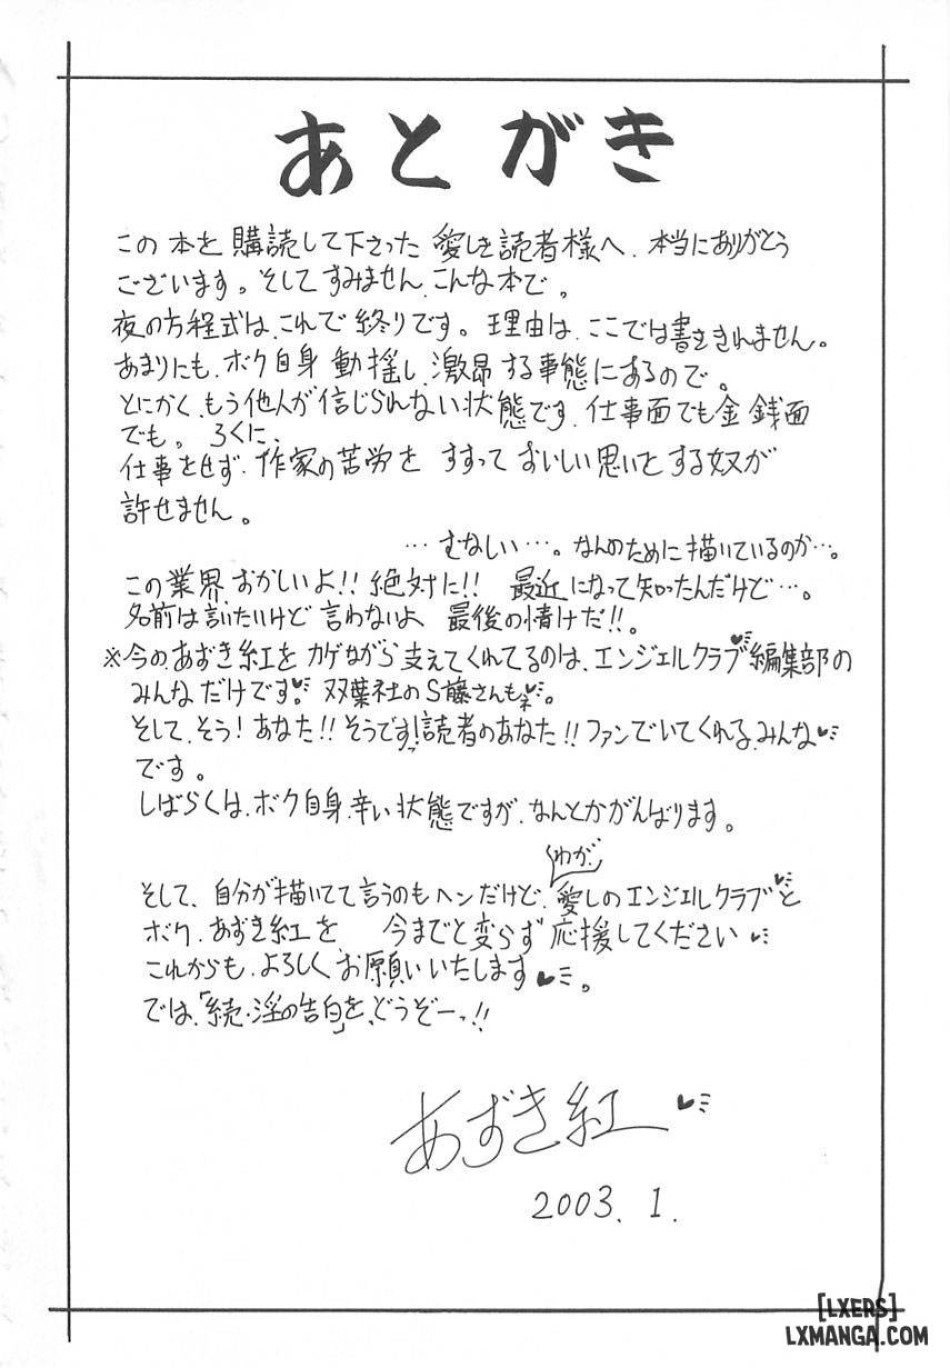 あとがき
この本を購読して下さった愛しき読者様へ、本当にありがとう
ございます。そしてすみません、こんな本で。
夜の方程式は、これで終りです。理由は、ここでは書ききれません。
あまりにも、ボク自身動揺し、激昂する事態にあるので。
とにかく、もう他人が信じられない状態です、仕事面でも金銭面
でも。ろくに、
仕事をせず、作家の苦労をすすっておいしい思いをする奴が
許せません。
…むなしい…。なんのために描いているのか…。
この業界、おかしいよ!!絶対に!! 最近になって知ったんだけど…。
名前は言いたいけど言わないよ 最後の情けだ!!。
※今の、あずき紅をカゲながら支えてくれてるのは、エンジェルクラブ♥編集部の
みんなだけです♥。双葉社のS藤さんもネ♥。
そして、そう!あなた!!そうです!読者のあなた!!ファンでいてくれる、みんな♥
です。
しばらくは、ボク自身、辛い状態ですが、なんとかがんばります。
わが、
そして、自分が描いてて言うのもヘンだけど、愛しのエンジェルクラブ♥と
ボク、あずき紅を、今までと変らず応援してください♥
これからも、よろしくお願いいたします♥。
では、「続・淫の告白」を、どうぞーっ!!
あずき紅♥
2003.1.
[LXERS]
LXMANGA.COM